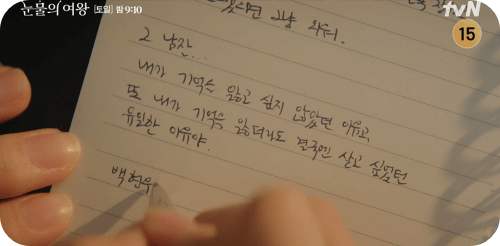 눈물의 여왕 [토일] 밤 9:10
tvN
15
그냥 외워.
그 남잔...
내가 기억을 잃고 싶지 않았던 이유고
또 내가 기억을 잃더라도 결국엔 살고 싶었던
유일한 이유야.
백현우